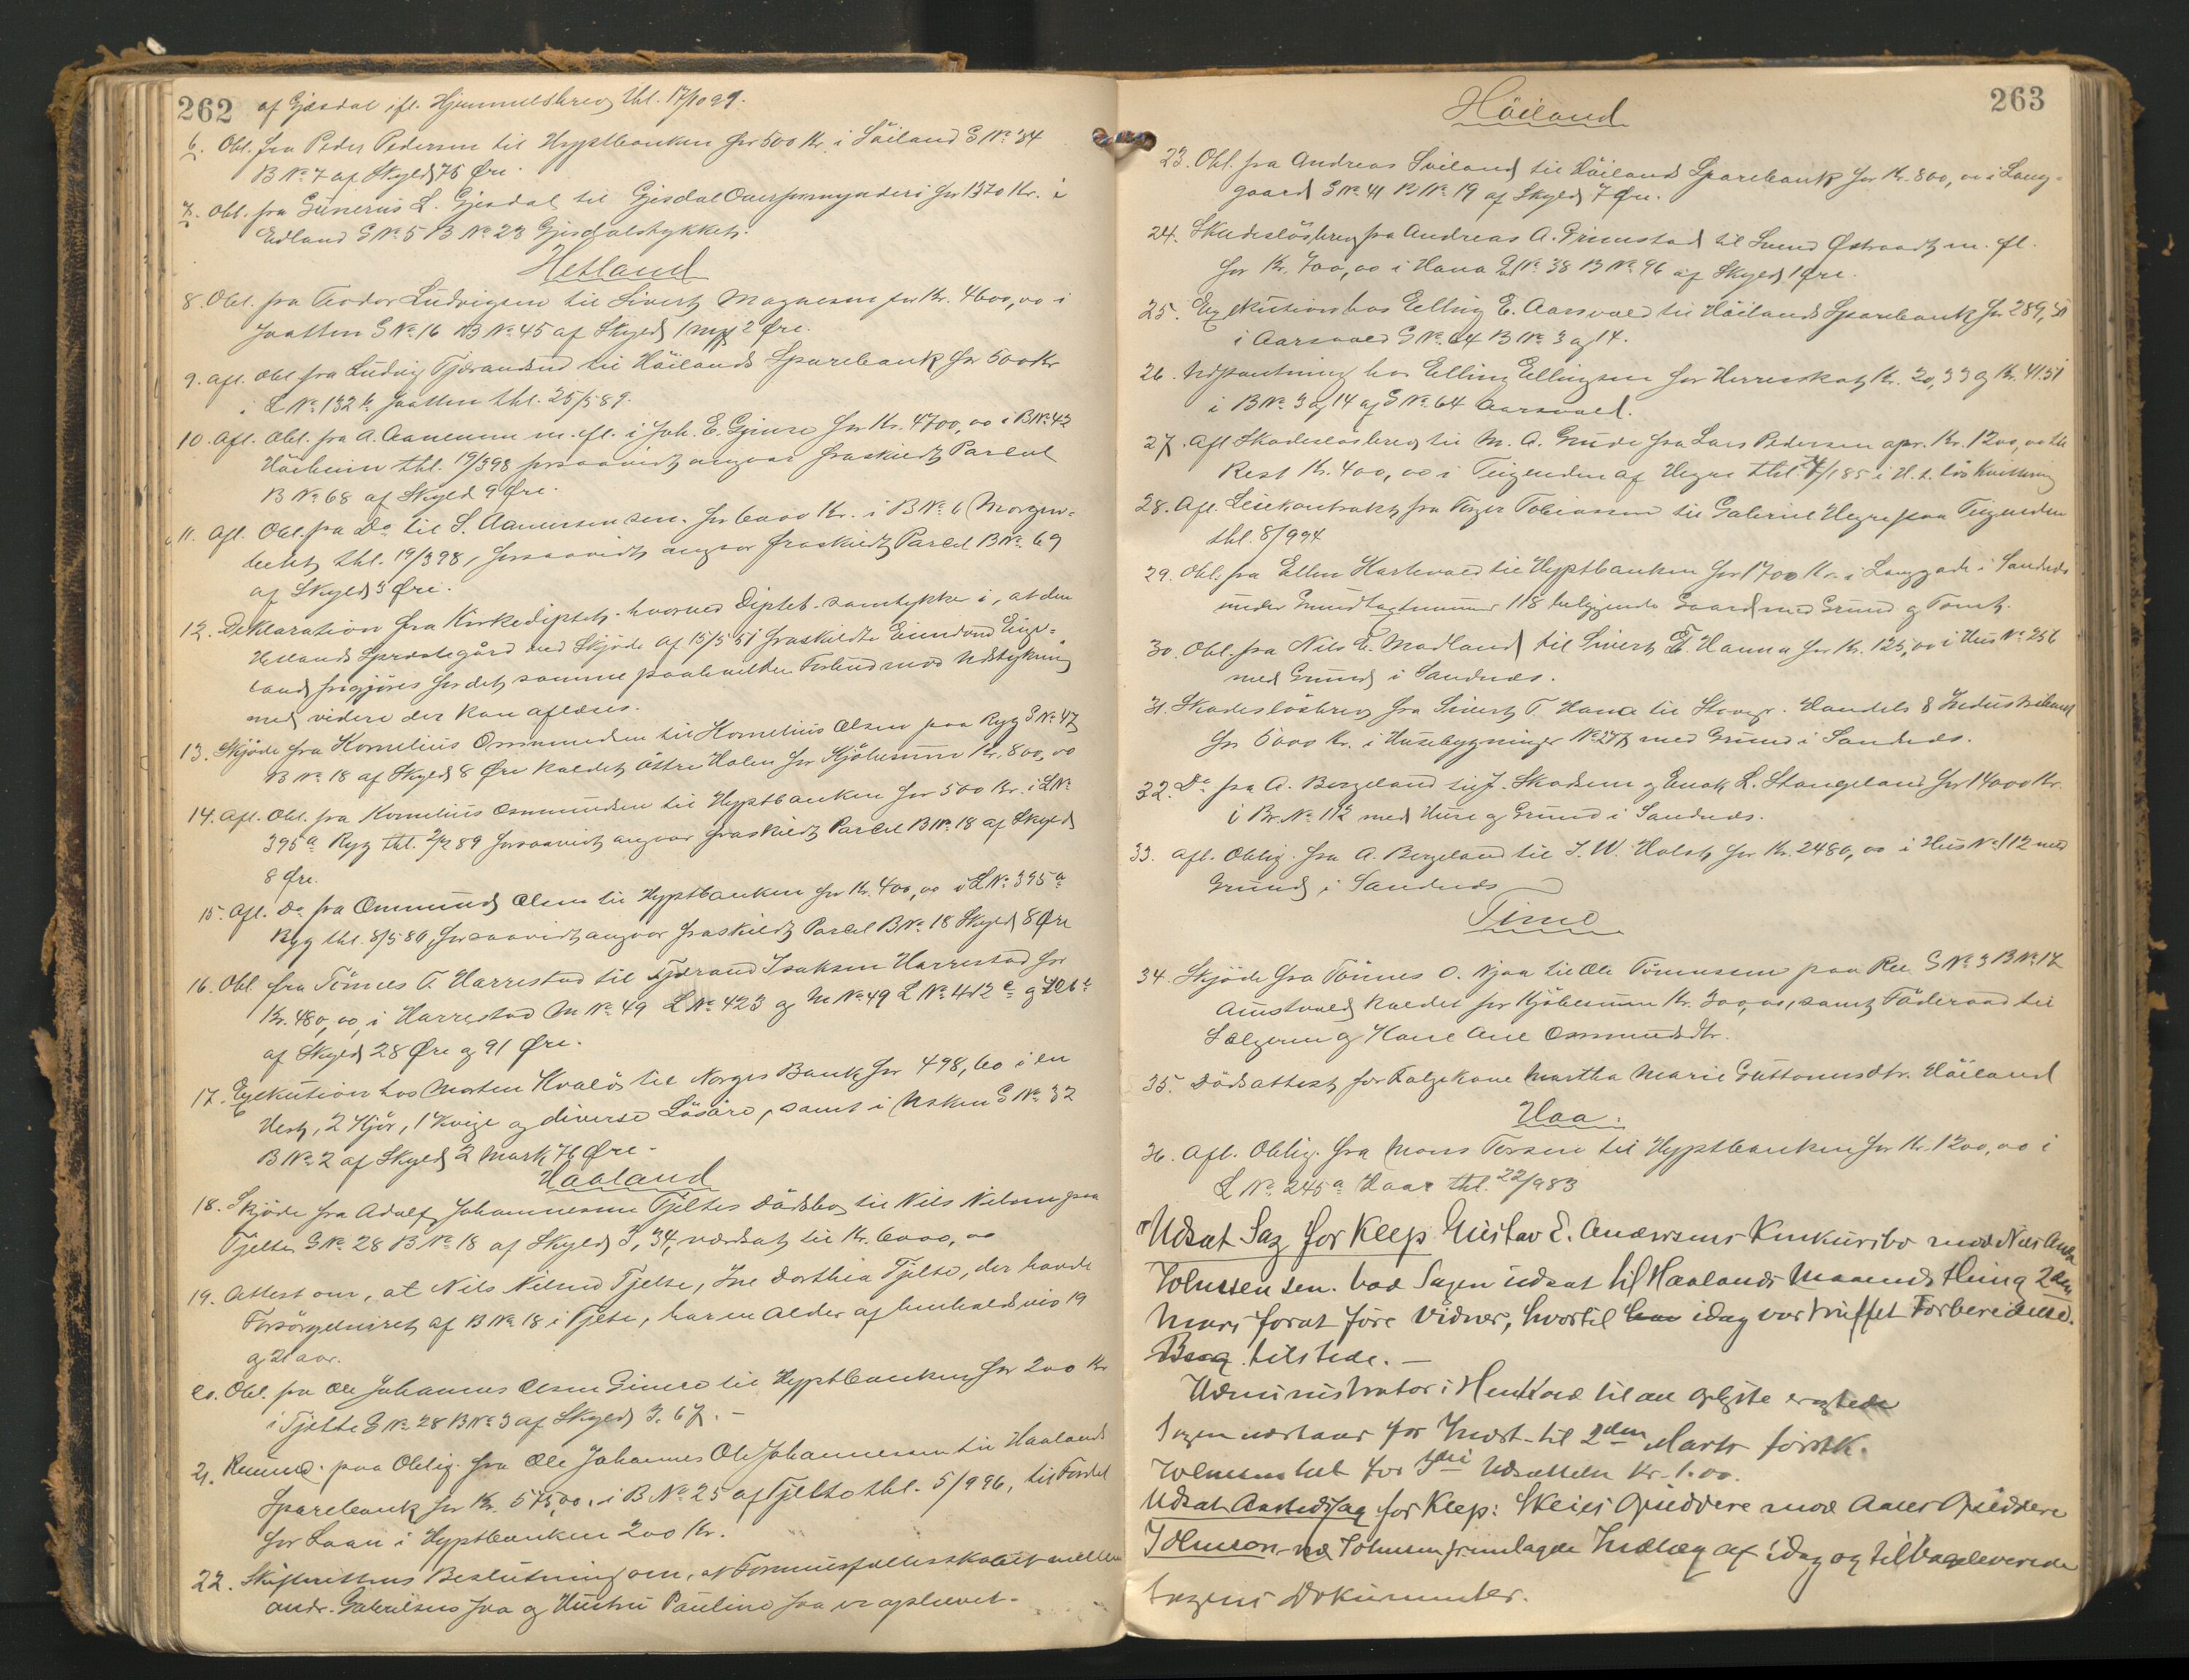 262 af Gjesdal ifl. Hjemmelsbrev thl. 17/10 99.
6. Obl. fra Peder Pedersen til Hyptbanken for 500 Kr. i Söiland G No 34
B No 7 af Skyld 76 Øre.
7. Obl. fra Gunerius L. Gjesdal til Gjesdal Overformynderi for 1370 Kr. i
Edland G No 5 B No 23 Gjesdalstykket.
Hetland
8. Obl. fra Teodor Ludvigsen til Sivert Magnesen for Kr. 4600,00 i
Jaatten G No 16 B No 45 af Skyld 1 m 2 Øre.
9. Afl. Obl. fra Ludvig Tjerandsen til Höilands Sparebank for 500 Kr
i L No 132 b Jaatten thl. 25/5 89.
10. Afl. Obl. fra A. Aanensen m. fl. i Joh. E. Gjemre for Kr. 4700,00 i B No 42
thl. 19/3 98 forsaavidt angaar fraskildt Parcel
B No 68 af Skyld 9 Øre.
11. Afl. Obl. fra Do til S. Aanensen sen. for 6000 Kr. i B No 6
thl. 19/3 98, forsaavidt angaar fraskildt Parcel B No 69
af Skyld 3 Øre.
12. Deklaration fra Kirkedeptet. hvorved Deptet samtykker i, at den
Hetlands Præstegård ved Skjöde af 15/5 51 fraskildte Eiendom
frigjöres for det samme paahvilende Forbud mod Udstykning
med videre der kan aflæses.
13. Skjöde fra Kornelius Ommundsen til Kornelius Olsen paa Ryg G No 47
B No 18 af Skyld 8 Øre kaldet Östre Holen for Kjöbesum Kr. 800,00
14. Afl. Obl. fra Kornelius Ommundsen til Hyptbanken for 500 Kr. i L No
395 a Ryg thl. 89 forsaavidt angaar fraskildt Parcel B No 18 af Skyld
8 Øre.
15. Afl. Do fra Ommund Olsen til Hyptbanken for Kr. 400,00 i L No 395 a
Ryg thl. 8/5 80, forsaavidt angaar fraskildt Parcel B No 18 Skyld 8 Øre
16. Obl. fra Tönnes T. Harrestad til Tjerand Isaksen Harrestad for
Kr. 480,00 i Harrestad M No 49 L No 423 og M No 49 L No 412 c og
af Skyld 28 Øre og 91 Øre.
17. Exekution hos Morten Hvalös til Norges Bank for 498,60 i en
Hest, 2 Kjör, 1 Kvige og diverse Lösöre, samt i Usken G No 32
B No 2 af Skyld 2 Mark 76 Øre.
Haaland
18. Skjöde fra Adolf Johannesen Tjeltes Dödsbo til Nils Nilsen paa
Tjelte G No 28 B No 18 af Skyld 3,34, værdsat til Kr. 6000,00
19. Attest om, at Nils Nilsen Tjelte, Ine Dorthea Tjelte, der havde
Forsörgelsesret af B No 18 i Tjelte, har en Alder af henholdsvis 19
og 21 aar.
20. Obl. fra Ole Johannes Olsen Gimre til Hyptbanken for 200 Kr
i Tjelte G No 28 B No 3 af Skyld 3.67. -
21. paa Oblig. fra Ole Johannes Ole Johannessen til Haalands
Sparebank for Kr. 575,00 i B No 25 af Tjelte thl. 5/9 96, til Fordel
for Laan i Hyptbanken 200 Kr.
22. Skifterettens Beslutning om, at Formuesfællesskabet mellem
Andr. Gabrielsen Joa og Hustru Pauline Joa er ophævet.
263
Höiland
23. Obl. fra Andreas Sviland til Höilands Sparebank for Kr. 800,00 i Lang-
gaard G No 41 B No 19 af Skyld 7 Øre.
24. Skadeslösbrev fra Andreas A. Grimstad til Svend Østraadt m. fl.
for Kr. 700,00 i Hana G No 38 B No 96 af Skyld 1 Øre.
25. Exekution hos Elling E. Aarsvold til Höilands Sparebank for 289,51
i Aarsvold G No 64 B No 3 og 14.
26. Udpantning hos Elling Ellingsen for Herredsskat Kr. 20,33 og Kr. 41.51
i B No 3 og 14 af G No 64 Aarsvold.
27. Afl. Skadeslösbrev til M. A. Grude fra Lars Pedersen opr. Kr. 1200,00
Rest Kr. 400,00 i Teigenden af Hegre thl. 1/1 85 i H. t. lös Kvittering
28. Afl. Leiekontrakt fra Torger Tobiassen til Gabriel Hegre paa Teigenden
thl. 8/9 94
29. Obl. fra Ellen Hartvold til Hyptbanken for 1700 Kr. i Langgade i Sandnæs
under Grundtaxtnummer 118 beliggende Gaard med Grund og Tomt.
30. Obl. fra Nils E. Madland til Sivert T. Hanna for Kr. 125,00 i Hus No 256
med Grund i Sandnæs.
31. Skadeslösbrev fra Sivert T. Hana til Stavgr. Handels & Industribank
for 6000 Kr. i Husebygninger No 277 med Grund i Sandnæs.
32. Do fra A. Bergeland til J. Skadsem og Enok L. Stangeland for 14000 Kr.
i Br. No 112 med Huse og Grund i Sandnæs.
33. Afl. Oblig. fra A. Bergeland til T. W. Holst for Kr. 2480,00 i Hus No 112 med
Grund i Sandnæs
Time
34. Skjöde fra Tönnes O. Njaa til Ole Tönnessen paa Ree G No 3 B No 17
Austvold kaldet for Kjöbesum Kr. 300,00, samt Föderaad til
Sælgeren og Kone Ane Ommundsdtr.
35. Dödsattest for Folgekone Martha Marie Guttormsdtr. Höiland
Haa.
36. Afl. Oblig. fra Mons Torsen til Hyptbanken for Kr. 1200,00 i
L No 245 a Haar thl. 22/9 83
Udsat Sag for Klep Gustav E. Andersens Konkursbo mod Nils Andr.
Tolnussen sen. bad Sagen udsat til Haalands Maanedsthing 2den
Mars forat före Vidner, hvortil idag var truffet Forberedelse.
Berg tilstede. -
Administrator i Henhold til det oplyste
Sagen udstaar for Indst. til 2den Marts förstk.
for 3die Udsættelse Kr. 1.00.
Udsat Aastedssag for Klep: Skeies Opsiddere mod Aases Opsiddere
fremlagde Indlæg af idag og tilbageleverede
Sagens Dokumenter.